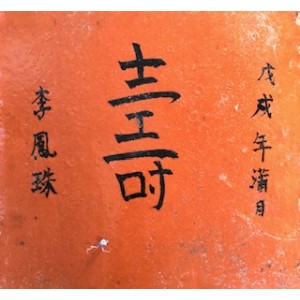 戊戌年蒲月
壽
李鳳珠